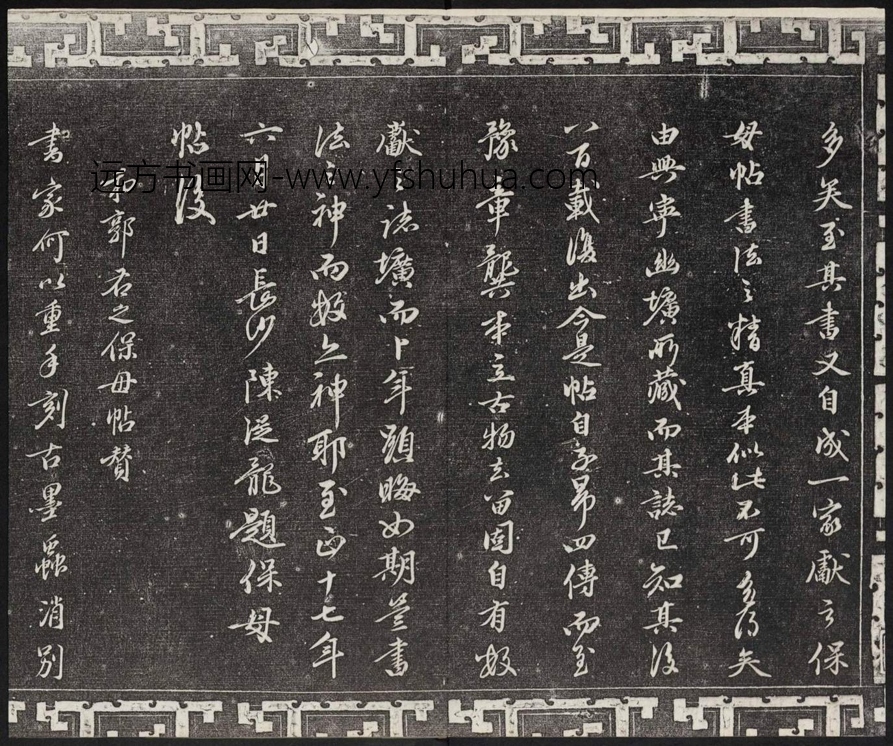 多矣至其書又自成一家獻之保
母帖書法之精真本似此不可多得矣
由興寧幽壙所藏而其誌已知其後
八百載復出今是帖自子昂四傳而至
豫章龔本立古物去留固自有數
獻之誌壙而卜年顯晦如期豈書
法之神而數之神耶至正十七年
六月廿日長沙陳從龍題保母
帖後
郭右之保母帖贊
書家何以重手刻古墨蟲消别
远方书画网-www.yfshuhua.com